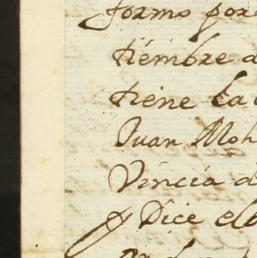 formo por
tiembre d
tiene la
Juan Moh
Vincia d
y Dice el